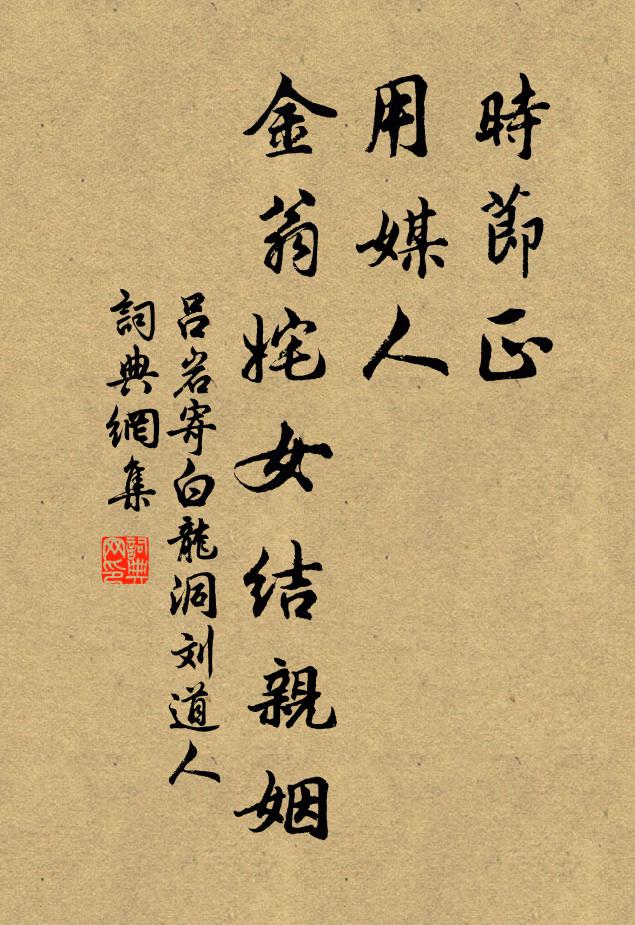 時節正
用媒人
金翁姹女結親姻
吕岩寄白龍洞刘道人
詞典網集
詞典
网印